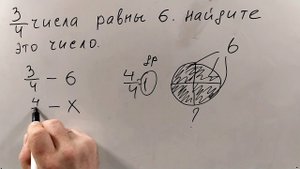 3/4 числа равны 6. найдите
это число.
3/4 – 6
4 – x
4/4 – 1
6
?